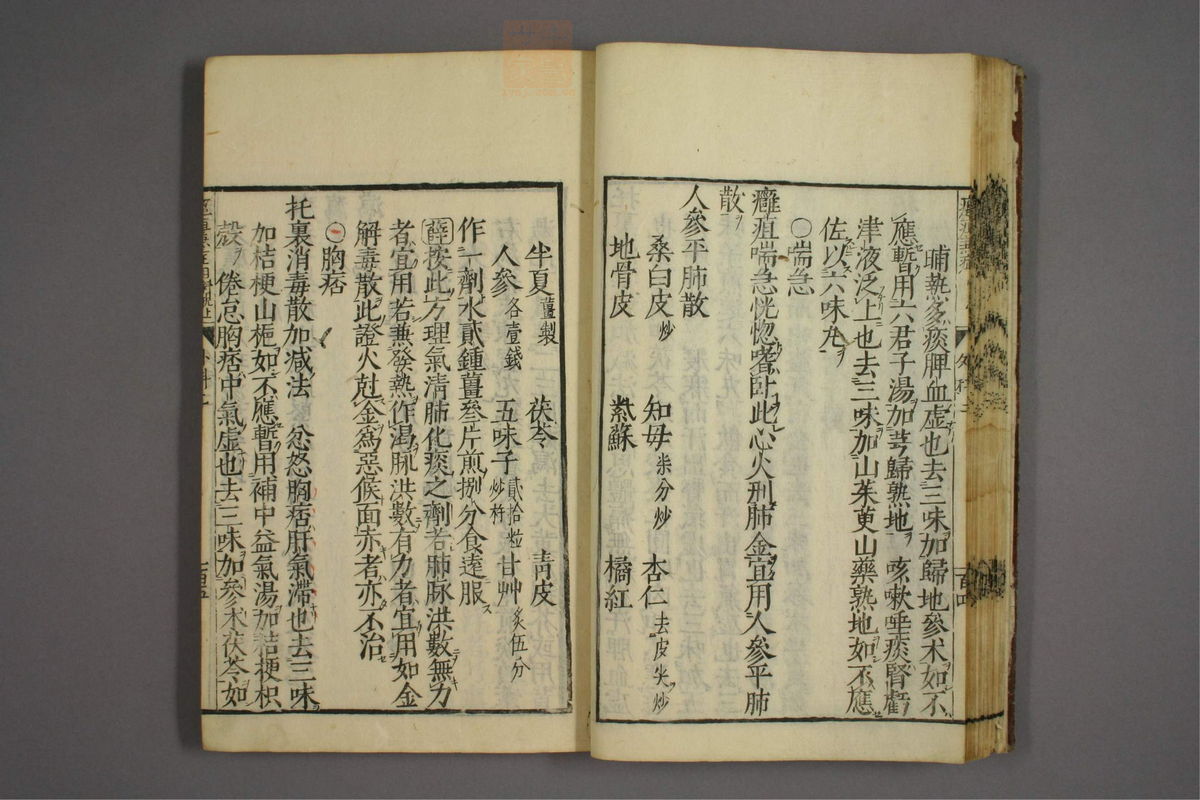 晡熱多痰脾血虛也去三味加歸地參朮如不
應暫用六君子湯加芎歸熟地 咳嗽唾痰腎虧
津液泛上也去三味加山茱萸山藥熟地如不應
佐以六味丸
○喘急
癰疽喘急恍惚嗜卧此心火刑肺金宜用人參平肺
散
人參平肺散
桑白皮炒 知母柒分炒 杏仁去皮尖炒
地骨皮 紫蘇 橘紅
半夏薑製 茯苓 青皮
人參各壹錢 五味子貳拾粒炒杵 甘艸炙伍分
作一劑水貳鍾薑叄片煎捌分食遠服
薛按此方理氣清肺化痰之劑若肺脉洪數無力
者宜用若兼發熱作渴脉洪數有力者宜用如金
解毒散此證火尅金為惡候面赤者亦不治
○胸痞
托裏消毒散加減法 忿怒胸痞肝氣滯也去三味
加桔梗山梔如不應暫用補中益氣湯加桔梗枳
殼 倦怠胸痞中氣虛也去三味加參朮茯苓如